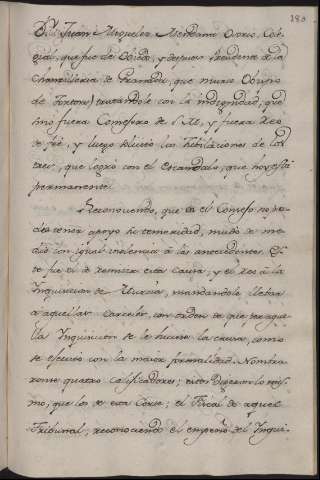 180
D.n Juan Arguelez Mendami Osorio, Cole-
gial, que fue de Oviedo, y despues Presidente de la
Chancilleria de Granada, que murio Obispo
de Tortosa) tratandole con la indignidad, que
sino fuera Consejero de S. M. y fuera Reo
de fee, y luego hicieron las Jubilaciones de los
tres, que logró con el Escandalo, que hoy está
permanente.
Reconociendo, que en el Consejo no po-
dia tener apoyo su temeridad, mudó de me-
dio con igual violencia à las antecedentes. Es-
te fue el de remitir esta Causa, y el Reo à la
Inquisicion de Murcia, mandandole llebar
à aquellas Carceles, con orden de que por aque-
lla Inquisicion se le hiciese la causa, como
se ejecutó con la maior formalidad. Nombra-
ronse quatro Calificadores; estos Digeron lo mis-
mo, que los de esta Corte; el Fiscal de aquel
Tribunal, reconociendo el empeño del Inqui-